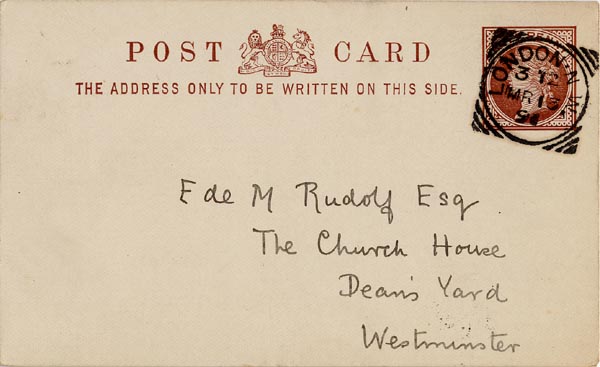 POST CARD
THE ADDRESS ONLY TO BE WRITTEN ON THIS SIDE.
LONDON·N.W
MR 16
94
E de M Rudolf Esq
The Church House
Dean's Yard
Westminster